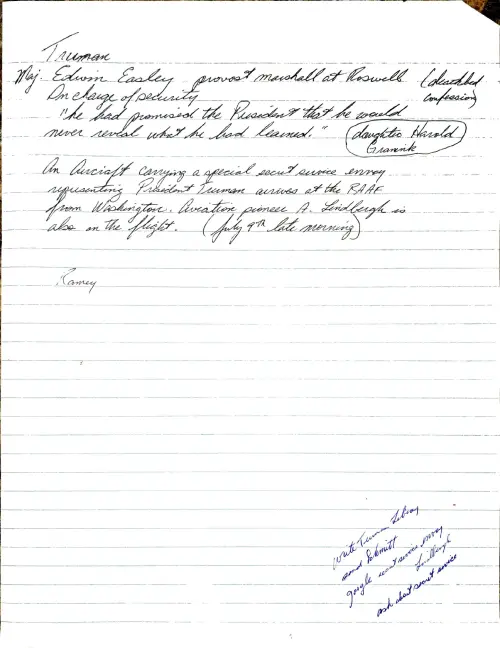 Truman
Maj. Edwin Easley - provost marshall at Roswell (deathbed confession)
In charge of security
"he had promised the President that he would
never reveal what he had learned." (daughter Harold
Granik
An Aircraft carrying a special secret service envoy
representing President Truman arrives at the RAAF
from Washington. Aviation pioneer A. Lindbergh is
also on the flight. (July 9th late morning)
Ramey
write Truman Library
send Schmitt
google secret service envoy
Lindbergh
ask about secret service